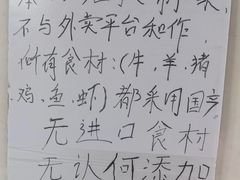 不与外卖平台和作
所有食材:(牛、羊、猪
鸡、鱼、虾)都采用国产
无进口食材
无认何添加